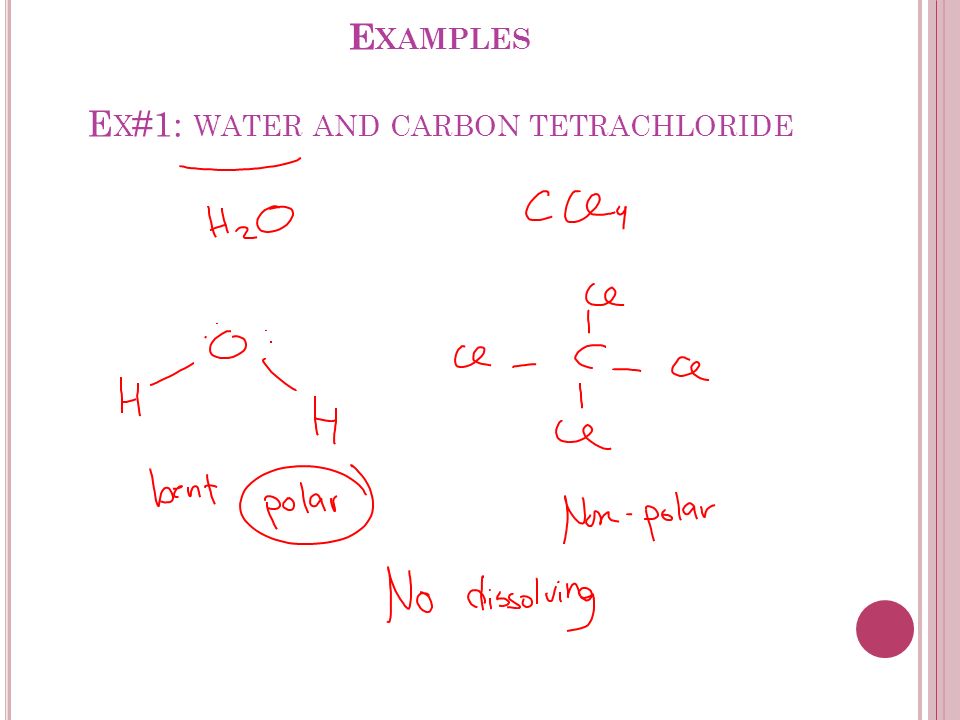 EXAMPLES
EX#1: WATER AND CARBON TETRACHLORIDE
H₂O CCl₄
Cl
O
Cl – C – Cl
H
H
Cl
bent polar
Non-polar
No dissolving